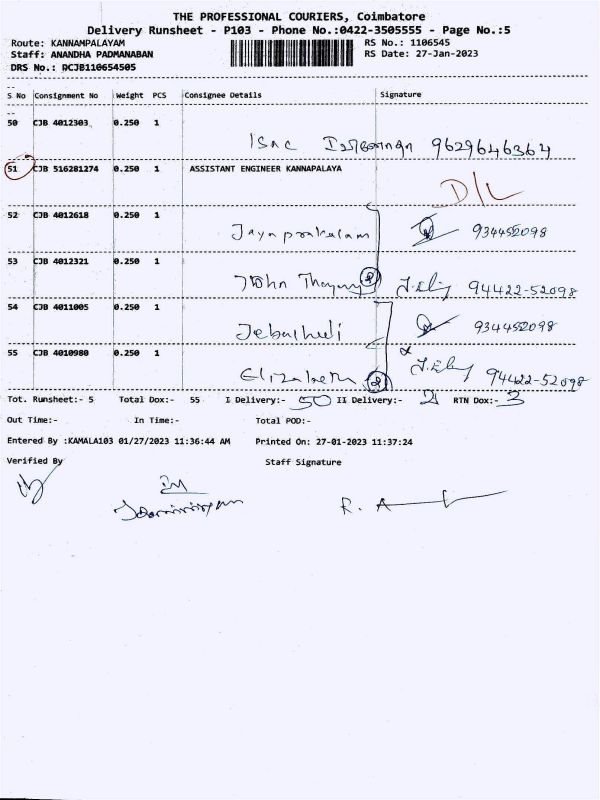 THE PROFESSIONAL COURIERS, Coimbatore
Delivery Runsheet - P103 - Phone No.:0422-3505555 - Page No.:5
Route: KANNAMPALAYAM RS No.: 1106545
Staff: ANANDHA PADMANABAN RS Date: 27-Jan-2023
DRS No.: DCJB110654505
S No Consignment No Weight PCS Consignee Details Signature
50 CJB 4012303 0.250 1
Isac 9629646364
51 CJB 516281274 0.250 1 ASSISTANT ENGINEER KANNAPALAYA
D/L
52 CJB 4012618 0.250 1
Jayaprakalam 934452098
53 CJB 4012321 0.250 1
John 2 94422-52098
54 CJB 4011005 0.250 1
934452098
55 CJB 4010980 0.250 1
Elizabeth 2 94422-52098
Tot. Runsheet:- 5 Total Dox:- 55 I Delivery:- 50 II Delivery:- 2 RTN Dox:- 3
Out Time:- In Time:- Total POD:-
Entered By :KAMALA103 01/27/2023 11:36:44 AM Printed On: 27-01-2023 11:37:24
Verified By Staff Signature
R. A